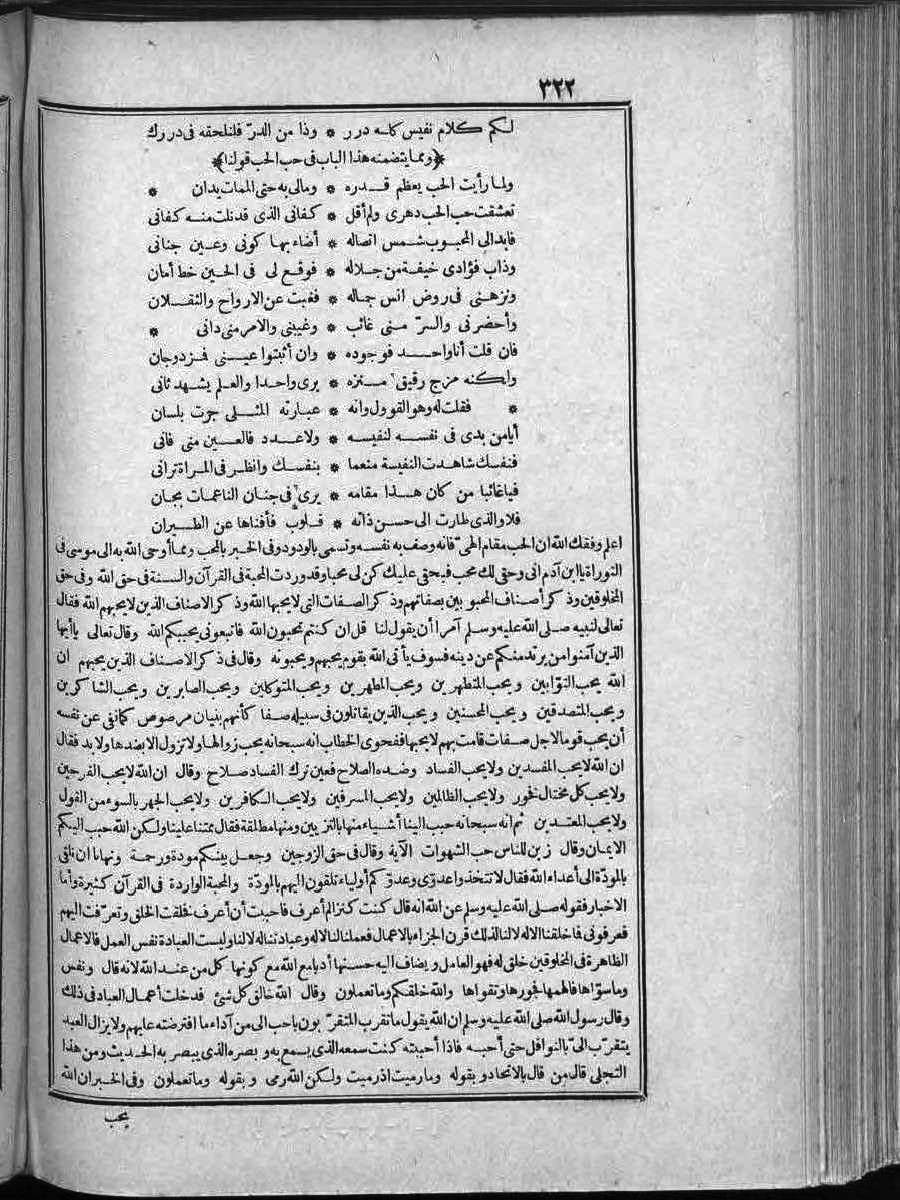 ٣٢٢
لكم كلام نفيس كله درر * وذا من الدرّ فلنلحقه فى دررك
﴿ومما يتضمنه هذا الباب فى حب الحب قولنا﴾
ولما رأيت الحب يعظم قدره * ومالى به حتى الممات يدان *
تعشقت حب الحب دهرى ولم أقل * كفانى الذى قد نلت منه كفانى
فابدالى المحبوب شمس اتصاله * أضاء بها كونى وعين جنانى
وذاب فؤادى خيفة من جلاله * فوقع لى فى الحين خط أمان
ونزهنى فى روض انس جماله * فغبت عن الارواح والثقلان
وأحضرنى والسرّ منى غائب * وغيبنى والامر منى دانى *
فان قلت أنا واحد فوجوده * وان أثبتوا عينى فزدوجان
ولكنه مزج رقيق منزه * يرى واحدا والعلم يشهد ثانى
* فقلت له وهو القوول وانه * عبارته المثلى جرت بلسان
أيا من بدى فى نفسه لنفيسه * ولا عدد فالعين منى فانى
فنفسك شاهدت النفيسة منعما * بنفسك وانظر فى المراة ترانى
فيا غائبا من كان هذا مقامه * يرى فى جنان الناعمات بجان
فلا والذى طارت الى حسن ذاته * قلوب فأفناها عن الطيران
اعلم وفقك الله ان الحب مقام الهىّ فانه وصف به نفسه وتسمى بالودود وفى الخبر بالمحب ومما أوحى الله به الى موسى فى
التوراة يا ابن آدم انى وحقى لك محب فبحقى عليك كن لى محبا وقد وردت المحبة فى القرآن والسنة فى حق الله وفى حق
المخلوقين وذكر أصناف المحبوبين بصفاتهم وذكر الصفات التى لا يحبها الله وذكر الاصناف الذين لا يحبهم الله فقال
تعالى لنبيه صلى الله عليه وسلم آمرا أن يقول لنا قل ان كنتم تحبون الله فاتبعونى يحببكم الله وقال تعالى يا أيها
الذين آمنوا من يرتد منكم عن دينه فسوف يأتى الله بقوم يحبهم ويحبونه وقال فى ذكر الاصناف الذين يحبهم ان
الله يحب التوّابين ويحب المتطهرين ويحب المطهرين ويحب المتوكلين ويحب الصابرين ويحب الشاكرين
ويحب المتصدقين ويحب المحسنين ويحب الذين يقاتلون فى سبيله صفا كأنهم بنيان مرصوص كما نفى عن نفسه
أن يحب قوما لاجل صفات قامت بهم لا يحبها ففحوى الخطاب انه سبحانه يحب زوالها ولا تزول الا بضدها ولا بد فقال
ان الله لا يحب المفسدين ولا يحب الفساد وضده الصلاح فعين ترك الفساد صلاح وقال ان الله لا يحب الفرحين
ولا يحب كل مختال فخور ولا يحب الظالمين ولا يحب المسرفين ولا يحب الكافرين ولا يحب الجهر بالسوء من القول
ولا يحب المعتدين ثم انه سبحانه حبب الينا أشياء منها بالتزيين ومنها مطلقة فقال ممتنا علينا ولكن الله حبب اليكم
الايمان وقال زين للناس حب الشهوات الآية وقال فى حق الزوجين وجعل بينكم مودة ورحمة ونهانا ان نلقى
بالمودّة الى أعداء الله فقال لا تتخذوا عدوّى وعدوّكم أولياء تلقون اليهم بالمودّة والمحبة الواردة فى القرآن كثيرة وأما
الاخبار فقوله صلى الله عليه وسلم عن الله انه قال كنت كنزا لم أعرف فاحببت أن أعرف فخلقت الخلق وتعرّفت اليهم
فعرفونى فما خلقنا الا له لا لنا لذلك قرن الجزاء بالاعمال فعملنا لنا لا له وعبادتنا له لا لنا وليست العبادة نفس العمل فالاعمال
الظاهرة فى المخلوقين خلق له فهو العامل ويضاف اليه حسنها أدبا مع الله مع كونها كل من عند الله لانه قال ونفس
وما سوّاها فالهمها فجورها وتقواها والله خلقكم وما تعملون وقال الله خالق كل شئ فدخلت أعمال العباد فى ذلك
وقال رسول الله صلى الله عليه وسلم ان الله يقول ما تقرب المتقرّبون باحب الى من آداء ما افترضته عليهم ولا يزال العبد
يتقرّب الىّ بالنوافل حتى أحبه فاذا أحببته كنت سمعه الذى يسمع به وبصره الذى يبصر به الحديث ومن هذا
التجلى قال من قال بالاتحاد وبقوله وما رميت اذ رميت ولكن الله رمى وبقوله وما تعملون وفى الخبر ان الله
يحب